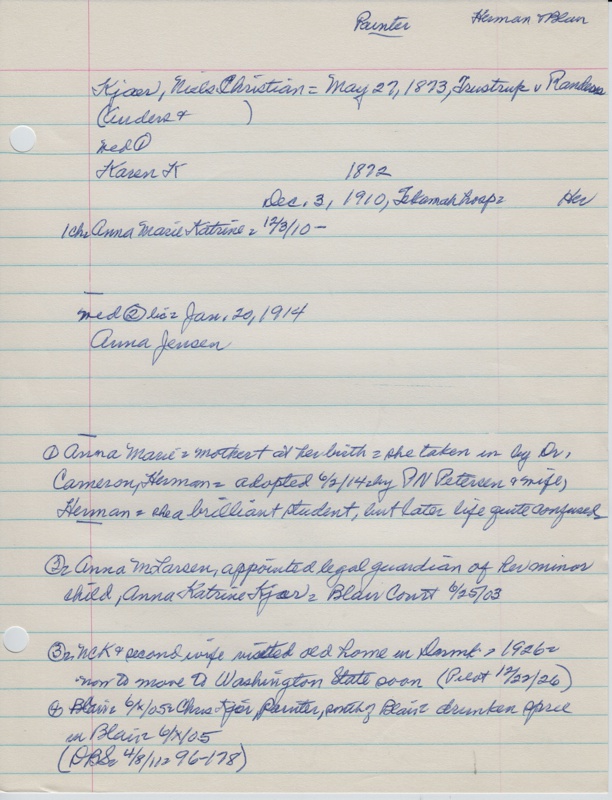 Painter Herman & Blair
Kjaer, Niels Christian = May 27, 1873, Trustrup v Randers
(Anders & )
med ①
Karen K 1872
Dec. 3, 1910, Tekamah hosp = Her
1 ch = Anna Marie Katrine = 12/3/10 -
med ② lic = Jan. 20, 1914
Anna Jensen
① Anna Marie = mother + at her birth = she taken in by Dr.
Cameron, Herman = adopted 6/2/14 by P N Petersen & wife,
Herman = she a brilliant student, but later life quite confused
② = Anna M Larsen, appointed legal guardian of her minor
child, Anna Katrine Kjaer = Blair Court 6/25/03
③ = NCK & second wife visited old home in Denmk = 1926 =
now to move to Washington State soon (Pilot 12/22/26)
④ Blair = 6/x/05 = Chris Kjer, Painter, south of Blair = drunken spree
in Blair = 6/x/05
(DBS = 4/8/11 = 96-178)